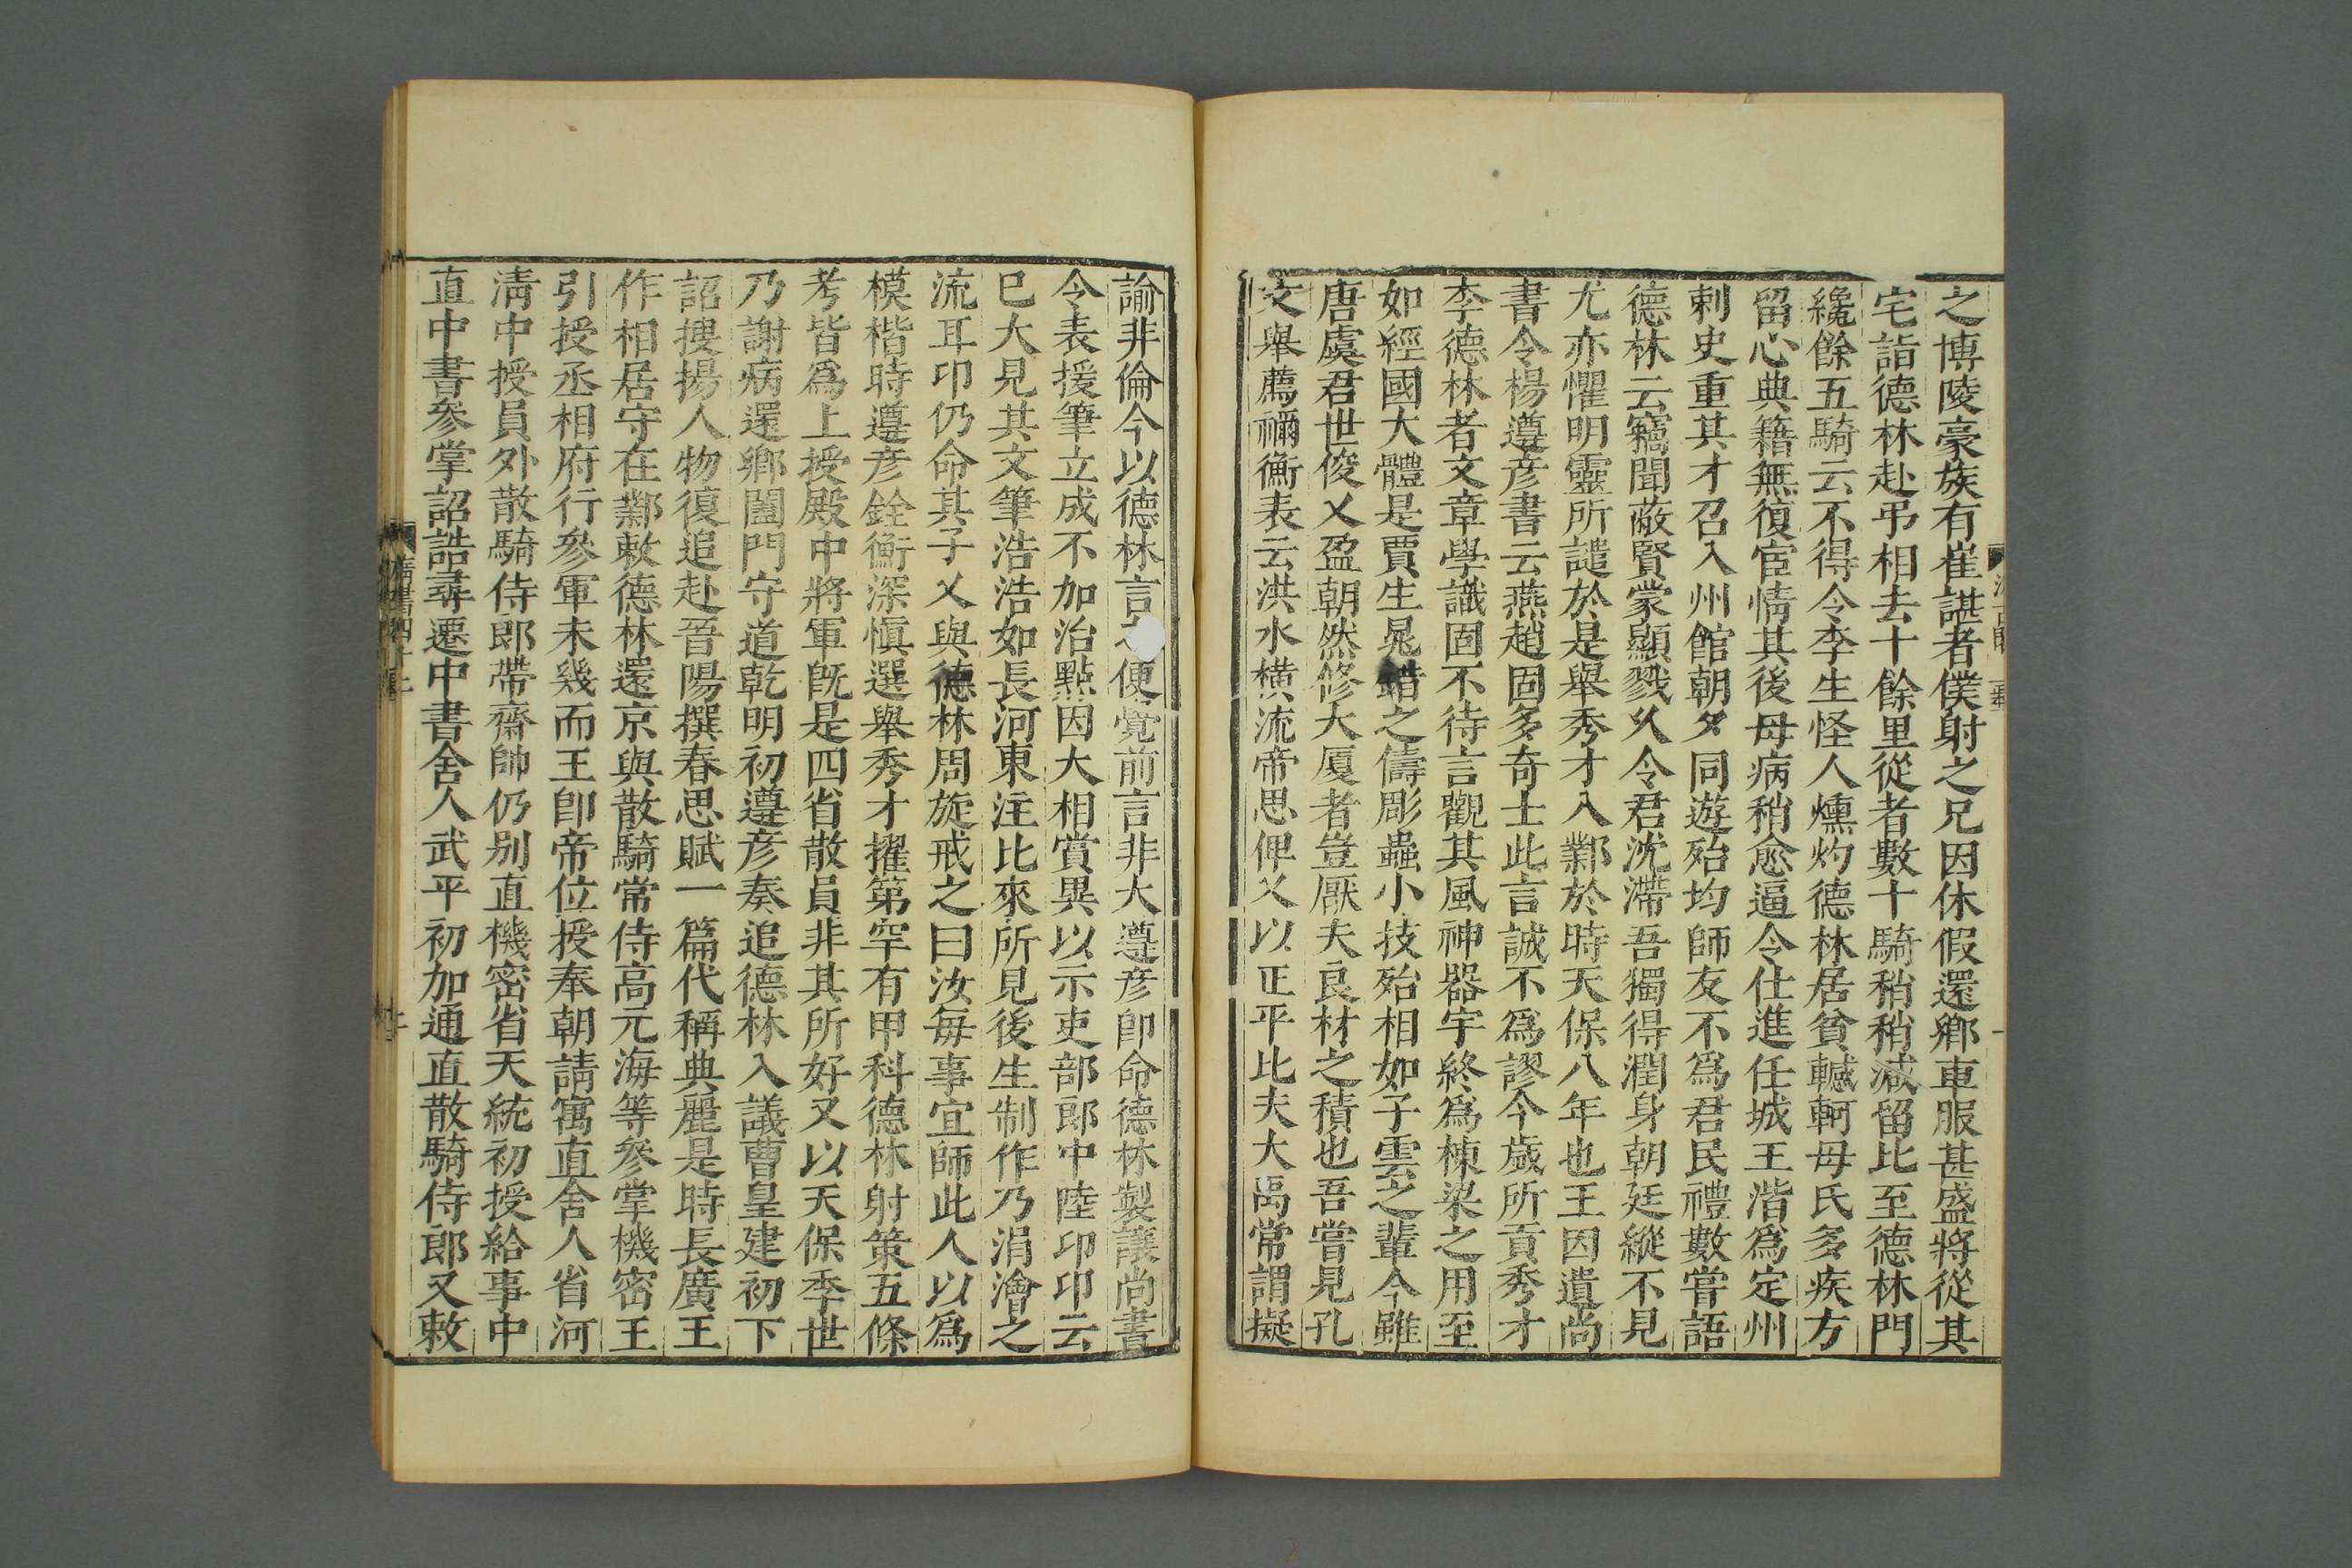 之博陵豪族有崔諶者僕射之兄因休假還鄉車服甚盛將從其
宅詣德林赴弔相去十餘里從者數十騎稍稍減留比至德林門
纔餘五騎云不得令李生怪人燻灼德林居貧轗軻母氏多疾方
留心典籍無復宦情其後母病稍愈逼令仕進任城王湝爲定州
刺史重其才召入州館朝夕同遊殆均師友不爲君民禮數嘗語
德林云竊聞蔽賢蒙顯戮久令君沈滯吾獨得潤身朝廷縱不見
尤亦懼明靈所譴於是舉秀才入鄴於時天保八年也王因遺尚
書令楊遵彥書云燕趙固多奇士此言誠不爲謬今歲所貢秀才
李德林者文章學識固不待言觀其風神器宇終爲棟梁之用至
如經國大體是賈生晁錯之儔彫蟲小技殆相如子雲之輩今雖
唐虞君世俊乂盈朝然修大厦者豈厭夫良材之積也吾嘗見孔
文舉薦禰衡表云洪水橫流帝思俾乂以正平比夫大禹常謂擬
諭非倫今以德林言便覺前言非大遵彥卽命德林製讓尚書
令表援筆立成不加治點因大相賞異以示吏部郎中陸卬卬云
巳大見其文筆浩浩如長河東注比來所見後生制作乃涓澮之
流耳卬仍命其子乂與德林周旋戒之曰汝每事宜師此人以爲
模楷時遵彥銓衡深愼選舉秀才擢第罕有甲科德林射策五條
考皆爲上授殿中將軍旣是四省散員非其所好又以天保季世
乃謝病還鄉闔門守道乾明初遵彥奏追德林入議曹皇建初下
詔搜揚人物復追赴晉陽撰春思賦一篇代稱典麗是時長廣王
作相居守在鄴敕德林還京與散騎常侍高元海等參掌機密王
引授丞相府行參軍未幾而王卽帝位授奉朝請寓直舍人省河
淸中授員外散騎侍郎帶齋帥仍别直機密省天統初授給事中
直中書參掌詔誥尋遷中書舍人武平初加通直散騎侍郎又敕